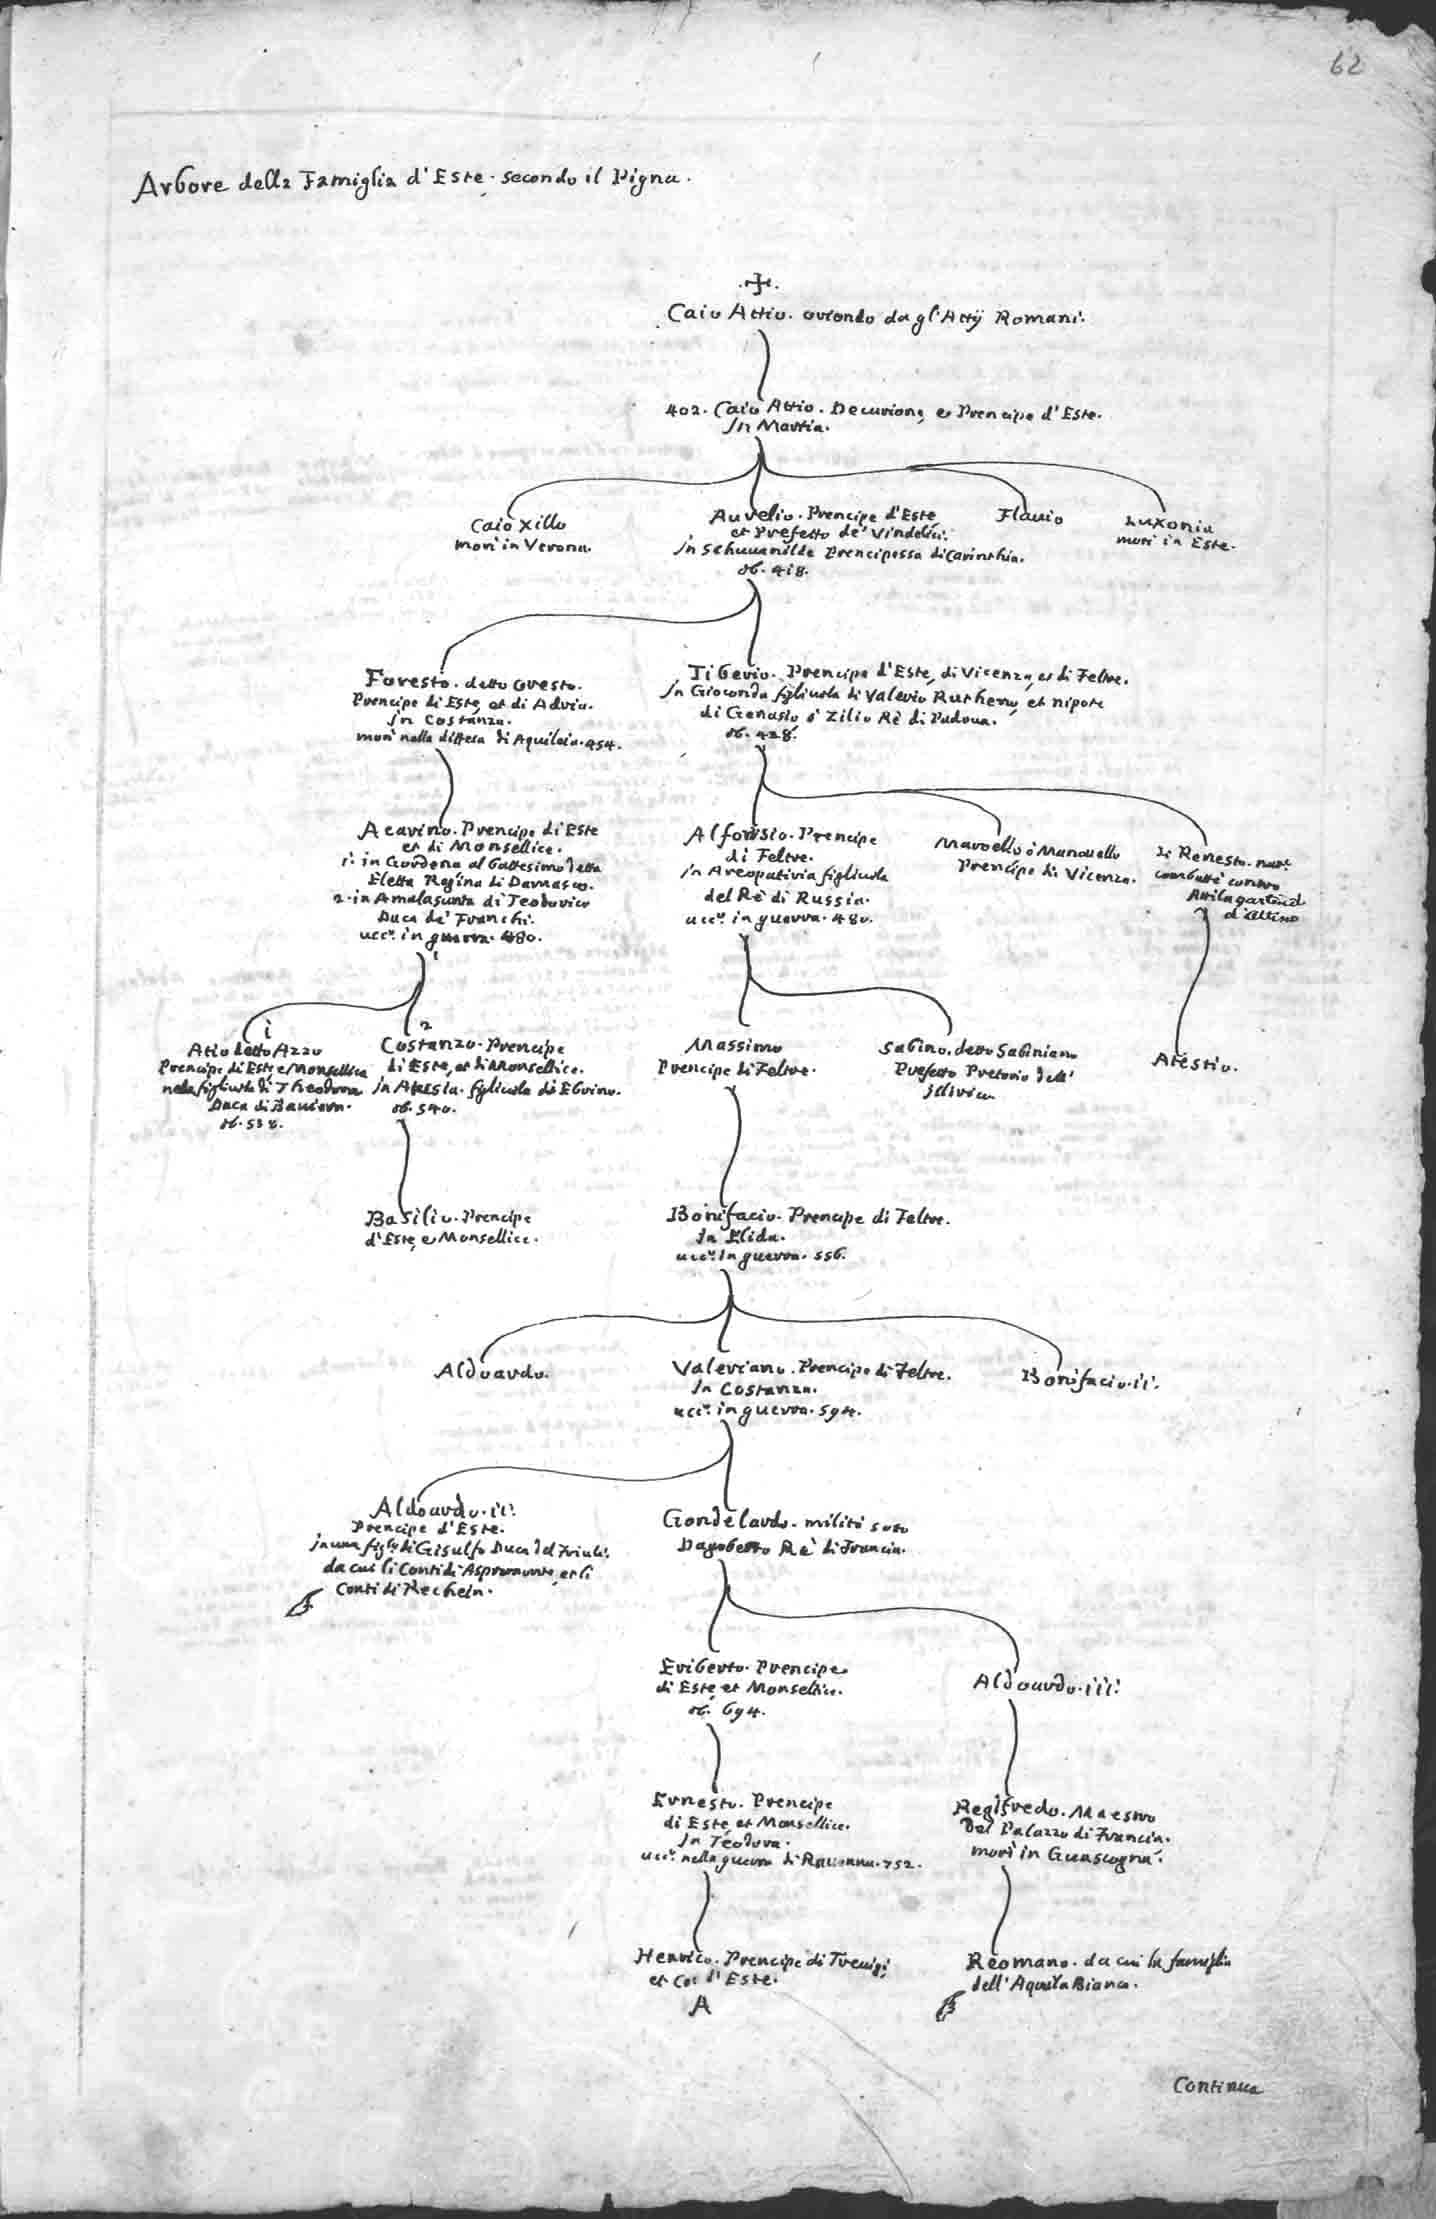 62
Arbore della Famiglia d'Este. secondo il Pigna.
Caio Attio. oriondo dagl'Attij Romani.
402. Caio Attio. Decurione, e Prencipe d'Este.
in Martia.
Caio Xillo
morì in Verona.
Aurelio. Prencipe d'Este
et Prefetto de' Vindelici.
in Schuuanilde Prencipessa di Carinthia.
ob. 418.
Flauio
Luxonia
morì in Este.
Foresto. detto Oresto.
Prencipe di Este, et di Adria.
in Costanza.
morì nella diffesa di Aquileia. 454.
Tiberio. Prencipe d'Este, di Vicenza, et di Feltre.
in Gioconda figliuola di Valerio Rutheno, et nipote
di Genusio ò Zilio Rè di Padoua.
ob. 428.
Acarino. Prencipe di Este
et di Monsellice.
1. in Gordena al Battesimo detta
Eletta Regina di Damasco.
2. in Amalasunta di Teodorico
Duca de' Franchi.
ucc.º in guerra. 480.
Alforisio. Prencipe
di Feltre.
in Areopativia figliuola
del Rè di Russia.
ucc.º in guerra. 480.
Maroello ò Manouello
Prencipe di Vicenza.
Renesto.
combattè contro
Attila
d'Altino
1
Atio detto Azzo
Prencipe di Este, e Monsellice
nela figliuola di Theodora
Duca di Bauiera.
ob. 538.
2
Costanzo. Prencipe
di Este, et di Monsellice.
in Atesia. figliuola di Ebrino.
ob. 540.
Massimo
Prencipe di Feltre.
Sabino. detto Sabiniano
Prefetto Pretorio dell'
illirico.
Atestio.
Basilio. Prencipe
d'Este, e Monsellice.
Bonifacio. Prencipe di Feltre.
in Elida.
ucc.º in guerra. 556.
Aldoardo.
Valeriano. Prencipe di Feltre.
in Costanza.
ucc.º in guerra. 594.
Bonifacio. ii.
Aldoardo. ii.
Prencipe d'Este.
in una figl.ª di Gisulfo Duca del Friuli.
da cui li Conti di Aspromonte, et li
Conti di Rechein.
Gondelardo. militò soto
Dagoberto Rè di Francia.
Eriberto. Prencipe
di Este, et Monsellice.
ob. 694.
Aldoardo. iii.
Ernesto. Prencipe
di Este, et Monsellice.
in Teodora.
ucc.º nella guerra di Rauenna. 752.
Reglfredo. Maestro
del Palazzo di Francia.
morì in Guascogna.
Henrico. Prencipe di Treuigi,
et Co: d'Este.
A
Reomano. da cui la famiglia
dell'Aquila Bianca.
Continua